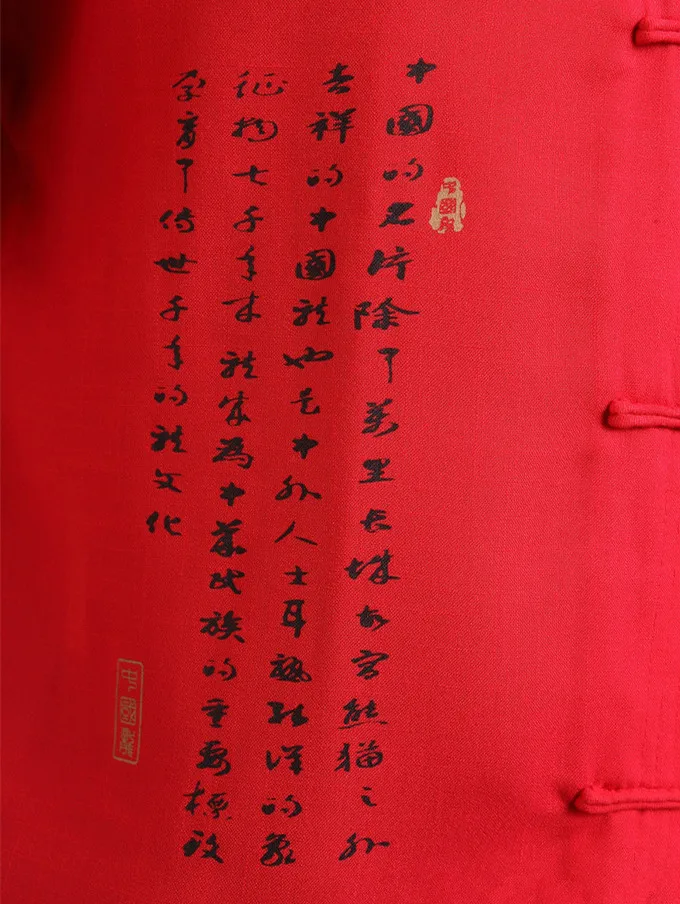 中國的名片除了萬里长城故宫熊猫之外
吉祥的中國龍也是中外人士耳熟能详的象
征物七千年来龍成為中華民族的重要標致
孕育了传世千年的龍文化
中國龍
中國龍